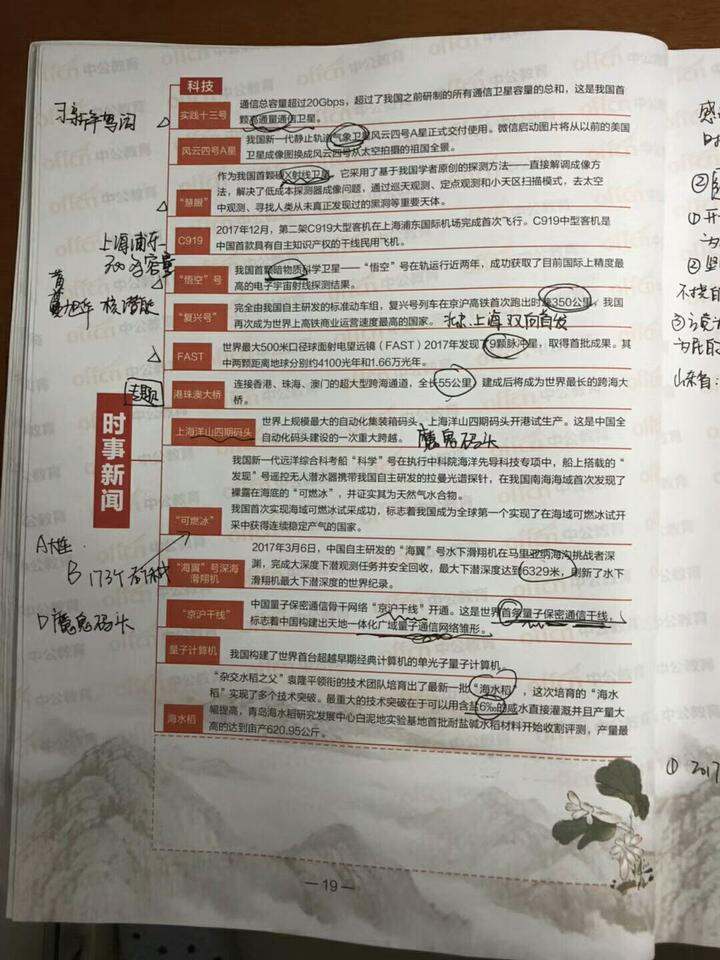 科技
实践十三号
通信总容量超过20Gbps，超过了我国之前研制的所有通信卫星容量的总和，这是我国首
颗高通量通信卫星。
风云四号A星
我国新一代静止轨道气象卫星风云四号A星正式交付使用。微信启动图片将从以前的美国
卫星成像图换成风云四号从太空拍摄的祖国全景。
“慧眼”
作为我国首颗硬X射线卫星，它采用了基于我国学者原创的探测方法——直接解调成像方
法，解决了低成本探测器成像问题，通过巡天观测、定点观测和小天区扫描模式，去太空
中观测、寻找人类从未真正发现过的黑洞等重要天体。
C919
2017年12月，第二架C919大型客机在上海浦东国际机场完成首次飞行。C919中型客机是
中国首款具有自主知识产权的干线民用飞机。
上海浦东
“悟空”号
我国首颗暗物质科学卫星——“悟空”号在轨运行近两年，成功获取了目前国际上精度最
高的电子宇宙射线探测结果。
“复兴号”
完全由我国自主研发的标准动车组，复兴号列车在京沪高铁首次跑出时速350公里，我国
再次成为世界上高铁商业运营速度最高的国家。
北京 上海 双向首发
FAST
世界最大500米口径球面射电望远镜（FAST）2017年发现了9颗脉冲星，取得首批成果。其
中两颗距离地球分别约4100光年和1.66万光年。
专题
港珠澳大桥
连接香港、珠海、澳门的超大型跨海通道，全长55公里，建成后将成为世界最长的跨海大
桥。
时事新闻
上海洋山四期码头
世界上规模最大的自动化集装箱码头，上海洋山四期码头开港试生产。这是中国全
自动化码头建设的一次重大跨越。
魔鬼码头
我国新一代远洋综合科考船“科学”号在执行中科院海洋先导科技专项中，船上搭载的“
发现”号遥控无人潜水器携带我国自主研发的拉曼光谱探针，在我国南海海域首次发现了
裸露在海底的“可燃冰”，并证实其为天然气水合物。
“可燃冰”
我国首次实现海域可燃冰试采成功，标志着我国成为全球第一个实现了在海域可燃冰试开
采中获得连续稳定产气的国家。
“海翼”号深海
滑翔机
2017年3月6日，中国自主研发的“海翼”号水下滑翔机在马里亚纳海沟挑战者深
渊，完成大深度下潜观测任务并安全回收，最大下潜深度达到6329米，刷新了水下
滑翔机最大下潜深度的世界纪录。
D魔鬼码头
“京沪干线”
中国量子保密通信骨干网络“京沪干线”开通。这是世界首条量子保密通信干线，
标志着中国构建出天地一体化广域量子通信网络雏形。
量子计算机
我国构建了世界首台超越早期经典计算机的单光子量子计算机。
海水稻
“杂交水稻之父”袁隆平领衔的技术团队培育出了最新一批“海水稻”，这次培育的“海水
稻”实现了多个技术突破。最重大的技术突破在于可以用含盐6‰的咸水直接灌溉并且产量大
幅提高，青岛海水稻研究发展中心白泥地实验基地首批耐盐碱水稻材料开始收割评测，产量最
高的达到亩产620.95公斤。
—19—
① 2017